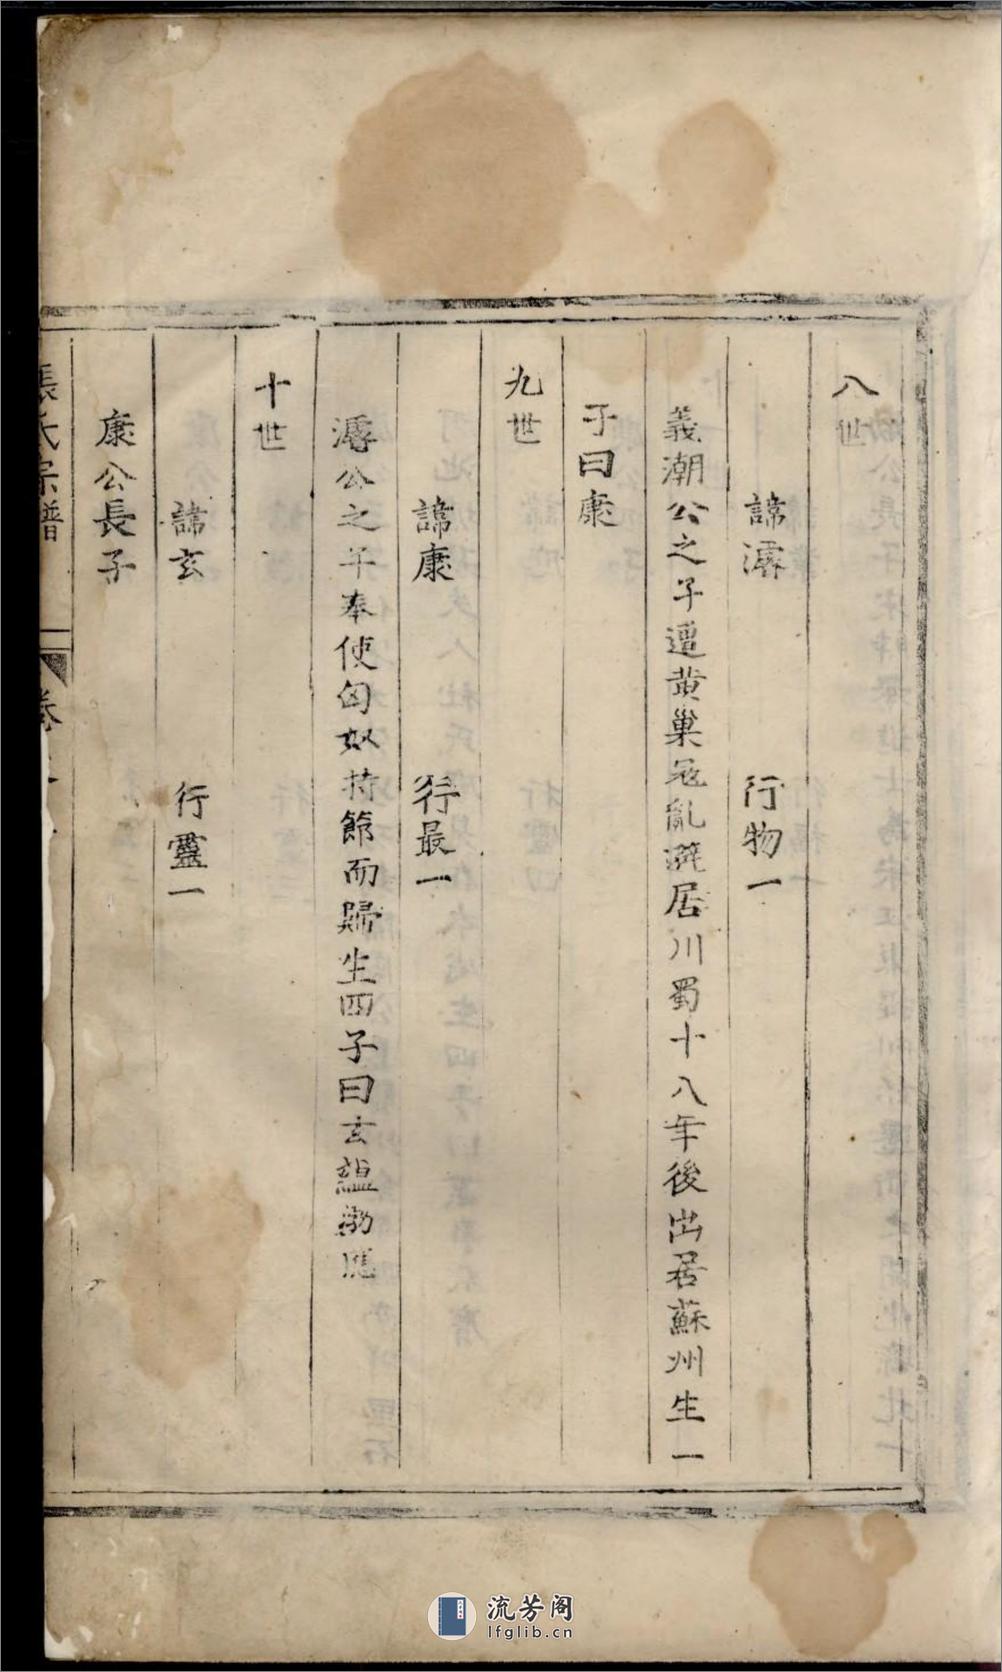 八世
諱㵽 行物一
義潮公之子遭黄巢冦亂避居川蜀十八年後出居蘇州生一
子曰康
九世
諱康 行最一
㵽公之子奉使匈奴持節而歸生四子曰玄縕渤應
十世
諱玄 行靈一
康公長子
張氏宗譜 卷
流芳阁
lfglib.cn